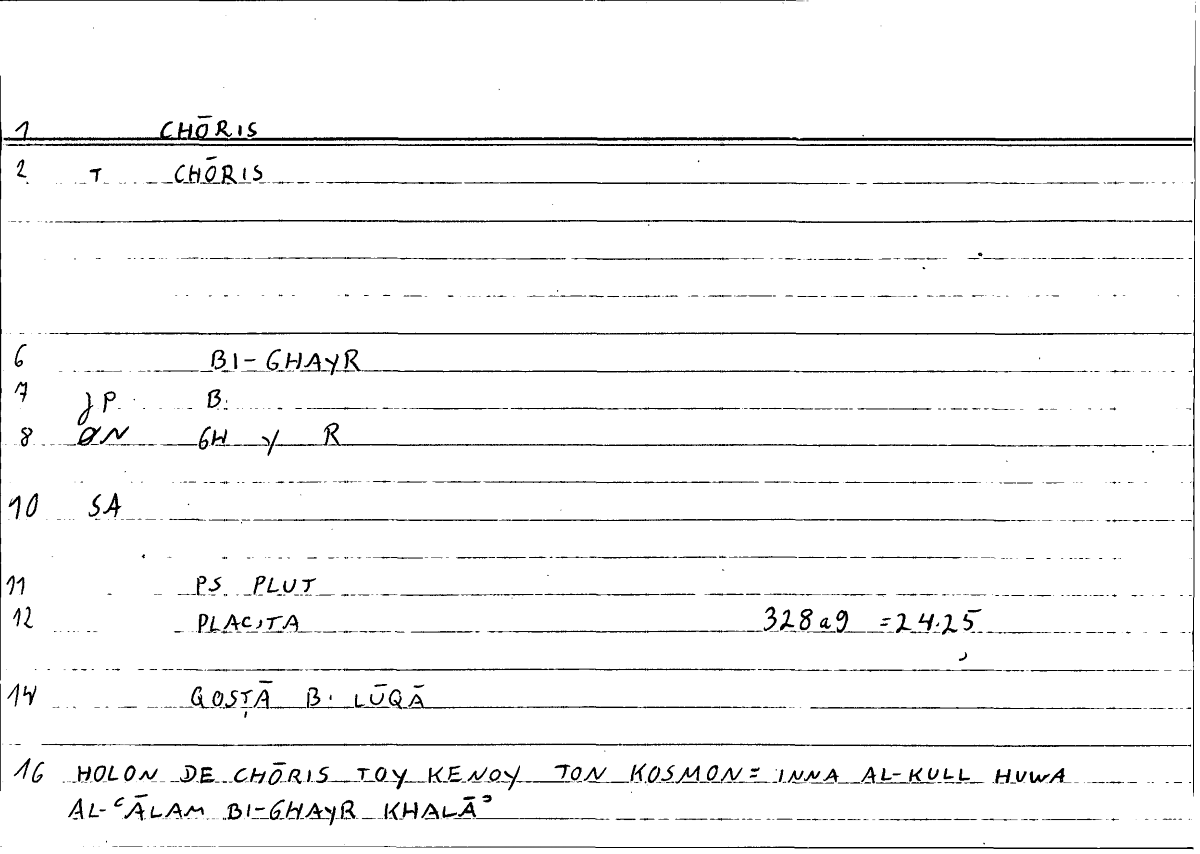 1 CHŌRIS
2 T CHŌRIS
6 BI-GHAYR
7 JP B.
8 ØN GH Y R
10 SA
11 PS PLUT
12 PLACITA 328a9 =24.25
14 QOSṬĀ B. LŪQĀ
16 HOLON DE CHŌRIS TOY KENOY TON KOSMON= INNA AL-KULL HUWA
AL-ʿĀLAM BI-GHAYR KHALĀʾ